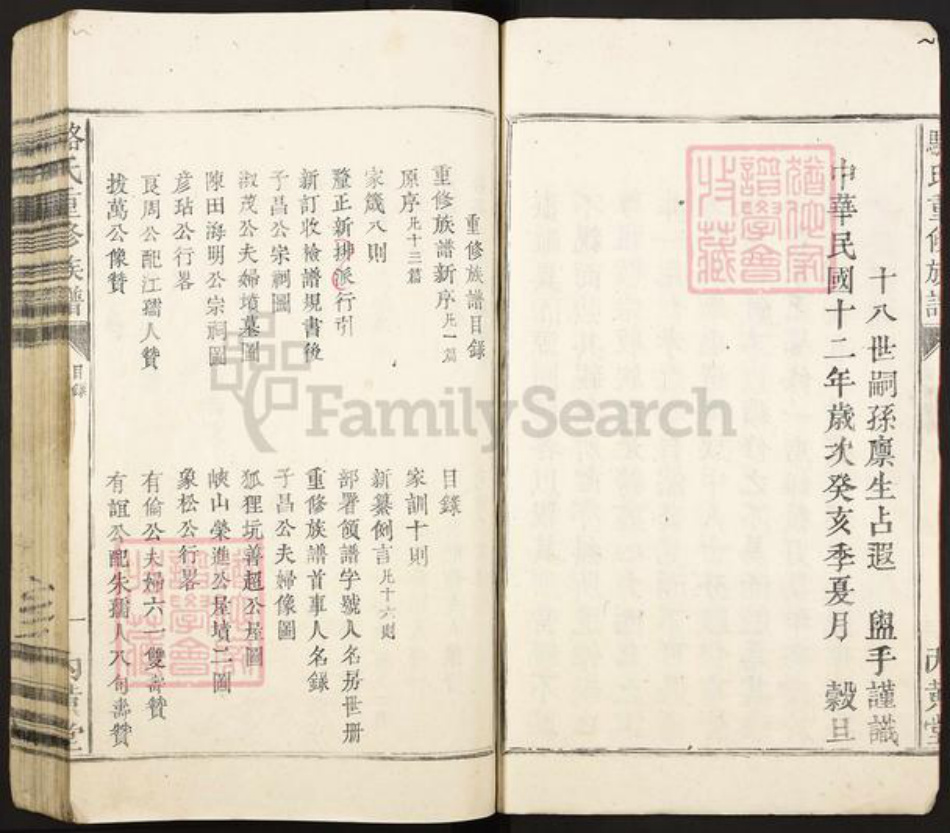 十八世嗣孫廪生占遐 盥手謹識
中華民國十二年歲次癸亥季夏月 穀旦
重修族譜目錄
重修族譜新序凡一篇
目錄
原序凡十三篇
家訓十則
家箴八則
新纂例言凡十六則
釐正新排派行引
部署領譜字號人名房世册
新訂收檢譜規書後
重修族譜首事人名錄
子昌公宗祠圖
子昌公夫婦像圖
淑茂公夫婦墳墓圖
狐狸坑善超公屋圖
陳田海明公宗祠圖
峽山榮進公屋墳二圖
彥玷公行畧
象松公行畧
良周公配江孺人贊
有倫公夫婦六一雙壽贊
拔萬公像贊
有誼公配朱孺人八旬壽贊
駱氏重修族譜
目錄
一
內黃堂
駱氏重修族譜
內黃堂
FamilySearch
收藏
譜學會